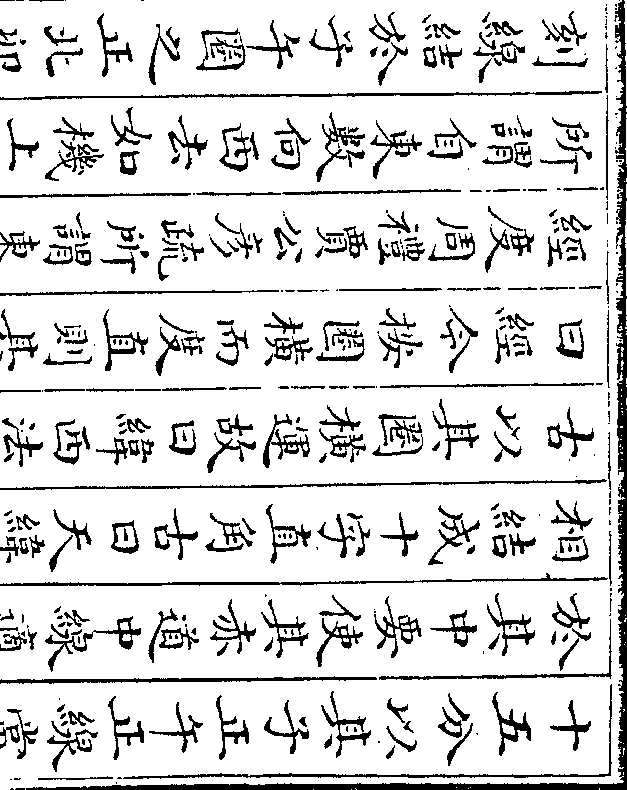 十五分以其子正午正線常
於其中要使其赤道中線適
相結成十字直角古曰天緯
古以其圈橫運故曰緯西法
曰經今按圈橫而度直則其
經度周禮賈公彥疏所謂東
所謂自東數向西去如機上
刻線結於子午圈之正北卯